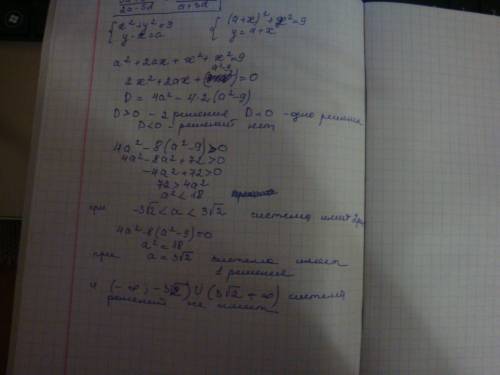 2a-3d a+3d
{x²+y²=9 {(a+x)²+x²=9
y-x=a y=a+x
a²+2ax+x²+x²=9
a²-9
2x²+2ax+( )=0
D = 4a²-4·2(a²-9)
D>0 - 2 решения D=0 - одно решение
D<0 - решений нет
4a²-8(a²-9)>0
4a²-8a²+72>0
-4a²+72>0
72>4a²
a²<18
при -3√2<a<3√2 система имеет 2
4a²-8(a²-9)=0
a²=18
при a=3√2 система имеет
1 решение
и (-∞;-3√2)∪(3√2+∞) система
решений не имеет